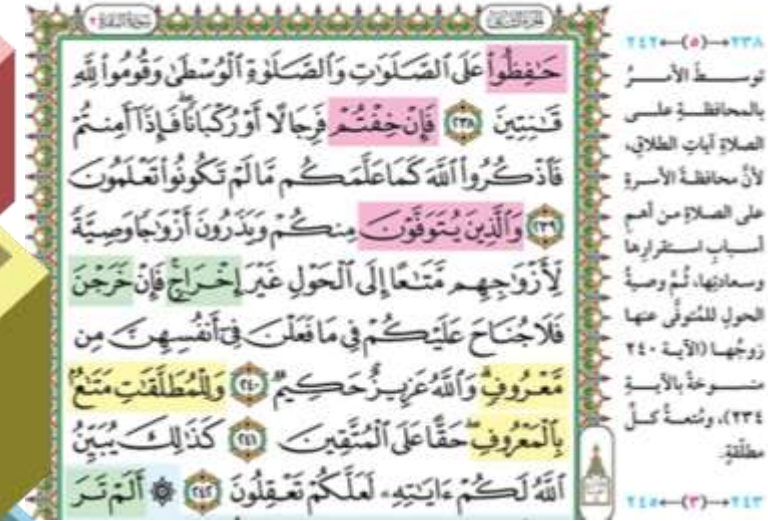 سُورَةُ البَقَرَةِ ٢
الجُزْءُ الثَّانِي
حَٰفِظُوا۟ عَلَى ٱلصَّلَوَٰتِ وَٱلصَّلَوٰةِ ٱلْوُسْطَىٰ وَقُومُوا۟ لِلَّهِ
قَٰنِتِينَ ٢٣٨ فَإِنْ خِفْتُمْ فَرِجَالًا أَوْ رُكْبَانًا ۖ فَإِذَآ أَمِنتُمْ
فَٱذْكُرُوا۟ ٱللَّهَ كَمَا عَلَّمَكُم مَّا لَمْ تَكُونُوا۟ تَعْلَمُونَ
٢٣٩ وَٱلَّذِينَ يُتَوَفَّوْنَ مِنكُمْ وَيَذَرُونَ أَزْوَٰجًا وَصِيَّةً
لِّأَزْوَٰجِهِم مَّتَٰعًا إِلَى ٱلْحَوْلِ غَيْرَ إِخْرَاجٍ ۚ فَإِنْ خَرَجْنَ
فَلَا جُنَاحَ عَلَيْكُمْ فِى مَا فَعَلْنَ فِىٓ أَنفُسِهِنَّ مِن
مَّعْرُوفٍ ۗ وَٱللَّهُ عَزِيزٌ حَكِيمٌ ٢٤٠ وَلِلْمُطَلَّقَٰتِ مَتَٰعٌۢ
بِٱلْمَعْرُوفِ ۖ حَقًّا عَلَى ٱلْمُتَّقِينَ ٢٤١ كَذَٰلِكَ يُبَيِّنُ
ٱللَّهُ لَكُمْ ءَايَٰتِهِۦ لَعَلَّكُمْ تَعْقِلُونَ ٢٤٢ ۞ أَلَمْ تَرَ
٢٣٨←(٥)→٢٤٢
توسطَ الأمرُ
بالمحافظةِ على
الصلاةِ آياتِ الطلاقِ،
لأنَّ محافظةَ الأسرةِ
على الصلاةِ من أهم
أسبابِ استقرارِها
وسعادتِها، ثُمَّ وصيةُ
الحولِ للمُتوفَّى عنها
زوجُها (الآية ٢٤٠
منسوخةٌ بالآيةِ
٢٣٤)، ومُتعةُ كلِّ
مطلّقةٍ.
٢٤٣←(٣)→٢٤٥